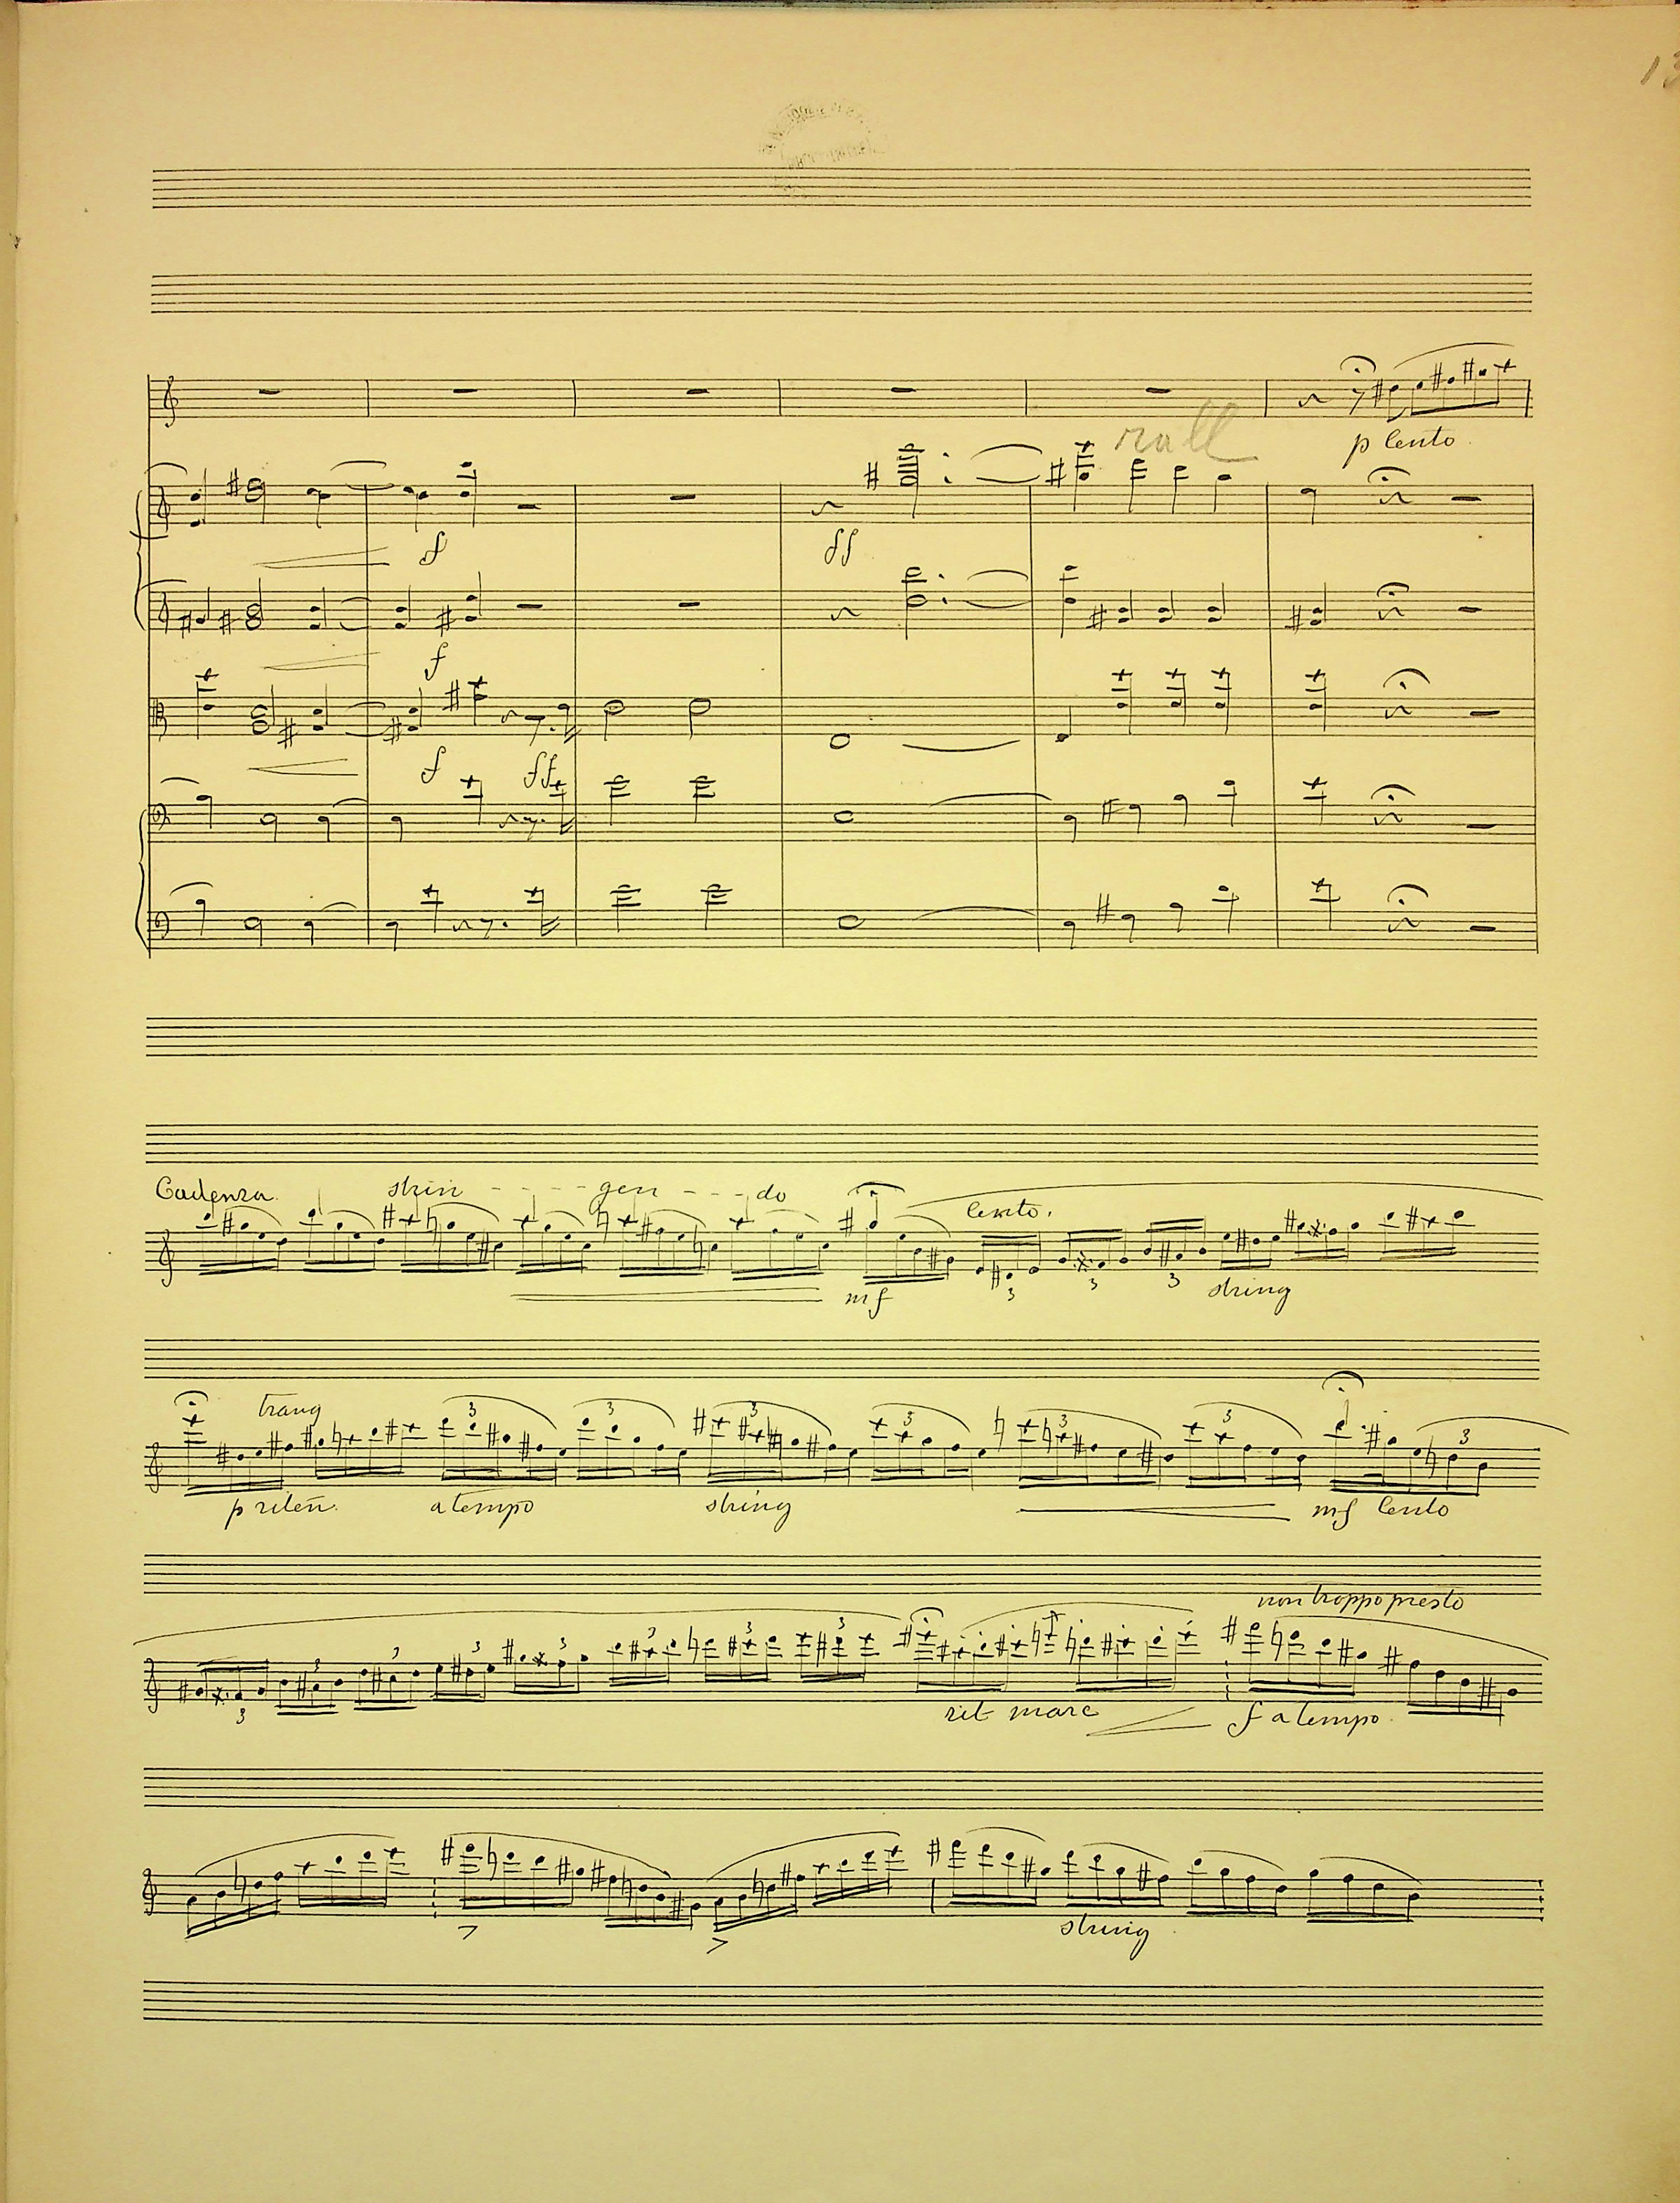 13
rall
p lento.
f
ff
f
f
ff
Cadenza. strin - - - - gen - - - do
lento.
mf
3
3
3
string
tranq
3
3
3
3
3
3
3
p riten. a tempo string mf lento
non troppo presto
3
3
3
3
3
3
3
3
rit marc f a tempo.
string